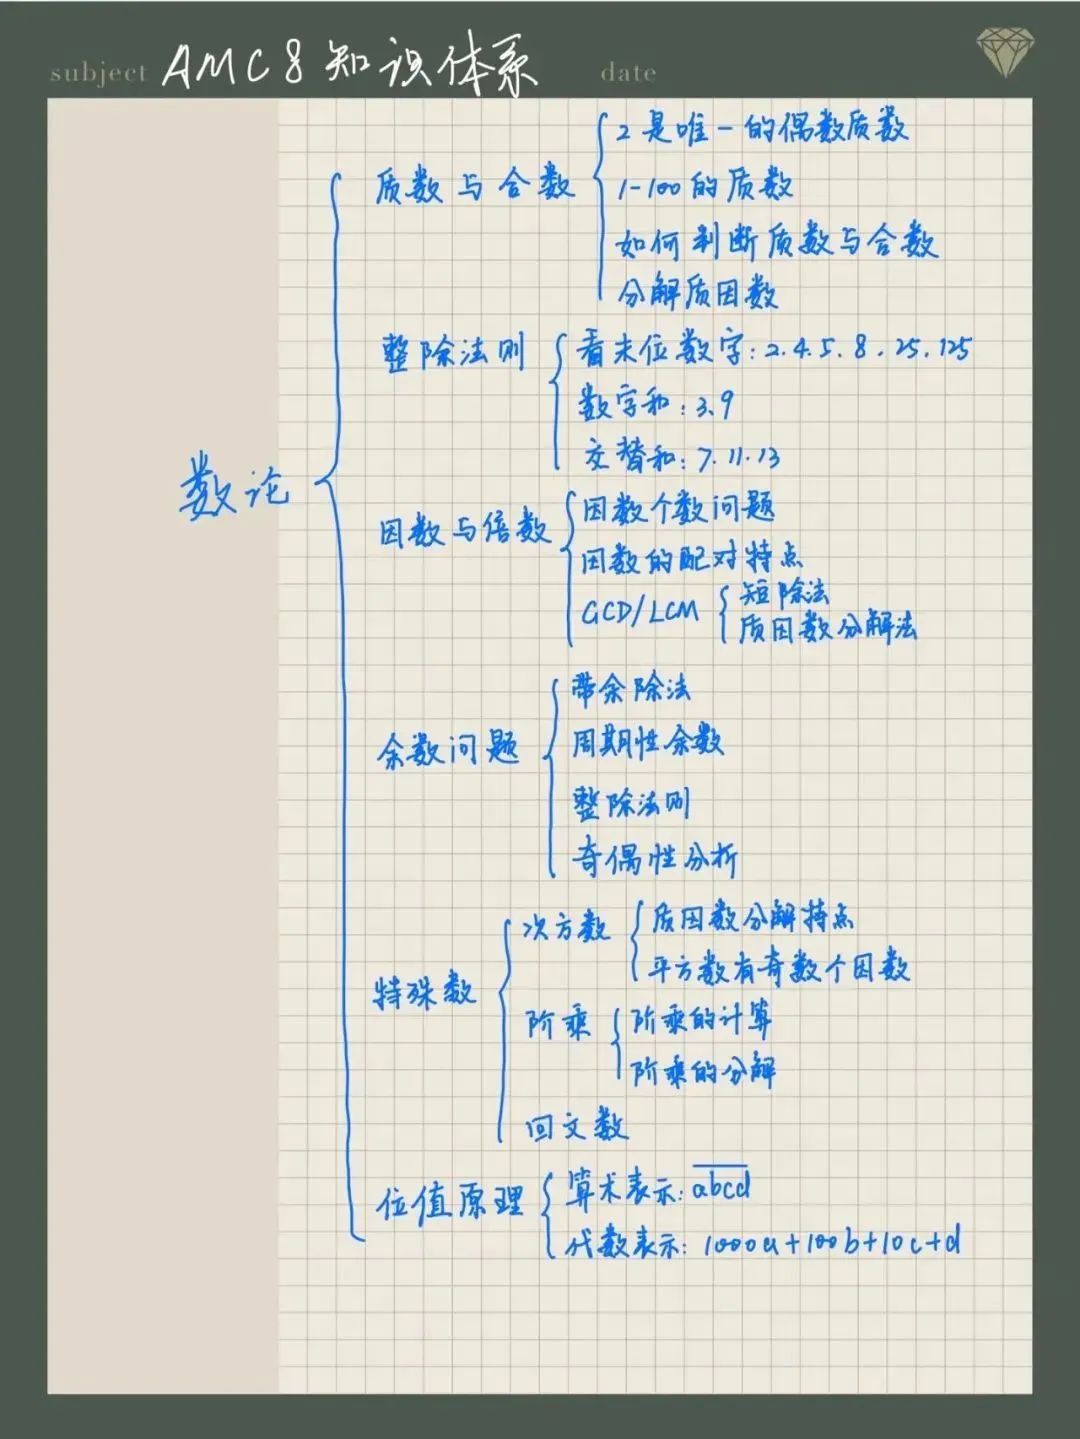 subject AMC8知识体系 date
数论
质数与合数
2是唯一的偶数质数
1-100的质数
如何判断质数与合数
分解质因数
整除法则
看末位数字:2.4.5.8.25.125
数字和:3.9
交替和:7.11.13
因数与倍数
因数个数问题
因数的配对特点
GCD/LCM
短除法
质因数分解法
余数问题
带余除法
周期性余数
整除法则
奇偶性分析
特殊数
次方数
质因数分解特点
平方数有奇数个因数
阶乘
阶乘的计算
阶乘的分解
回文数
位值原理
算术表示:a̅b̅c̅d̅
代数表示:1000a+100b+10c+d